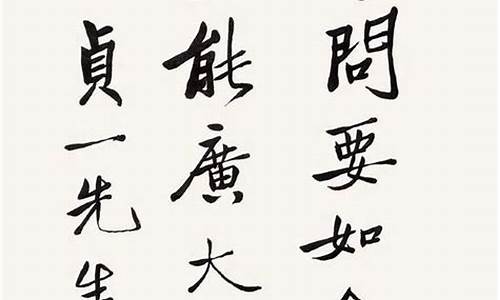 問要如
能廣大
貞一先生